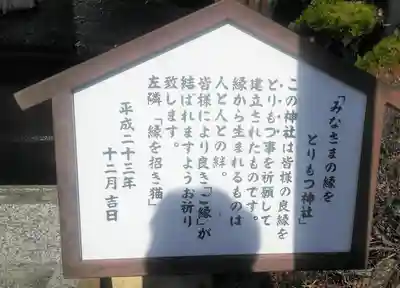 「みなさまの縁を
とりもつ神社」
この神社は皆様の良縁を
とりもつ事を祈願して
建立されたものです。
縁から生まれるものは
人と人との絆。
皆様により良き「ご縁」が
結ばれますようお祈り
致します。
左隣「縁を招き猫」
平成二十三年
十二月 吉日